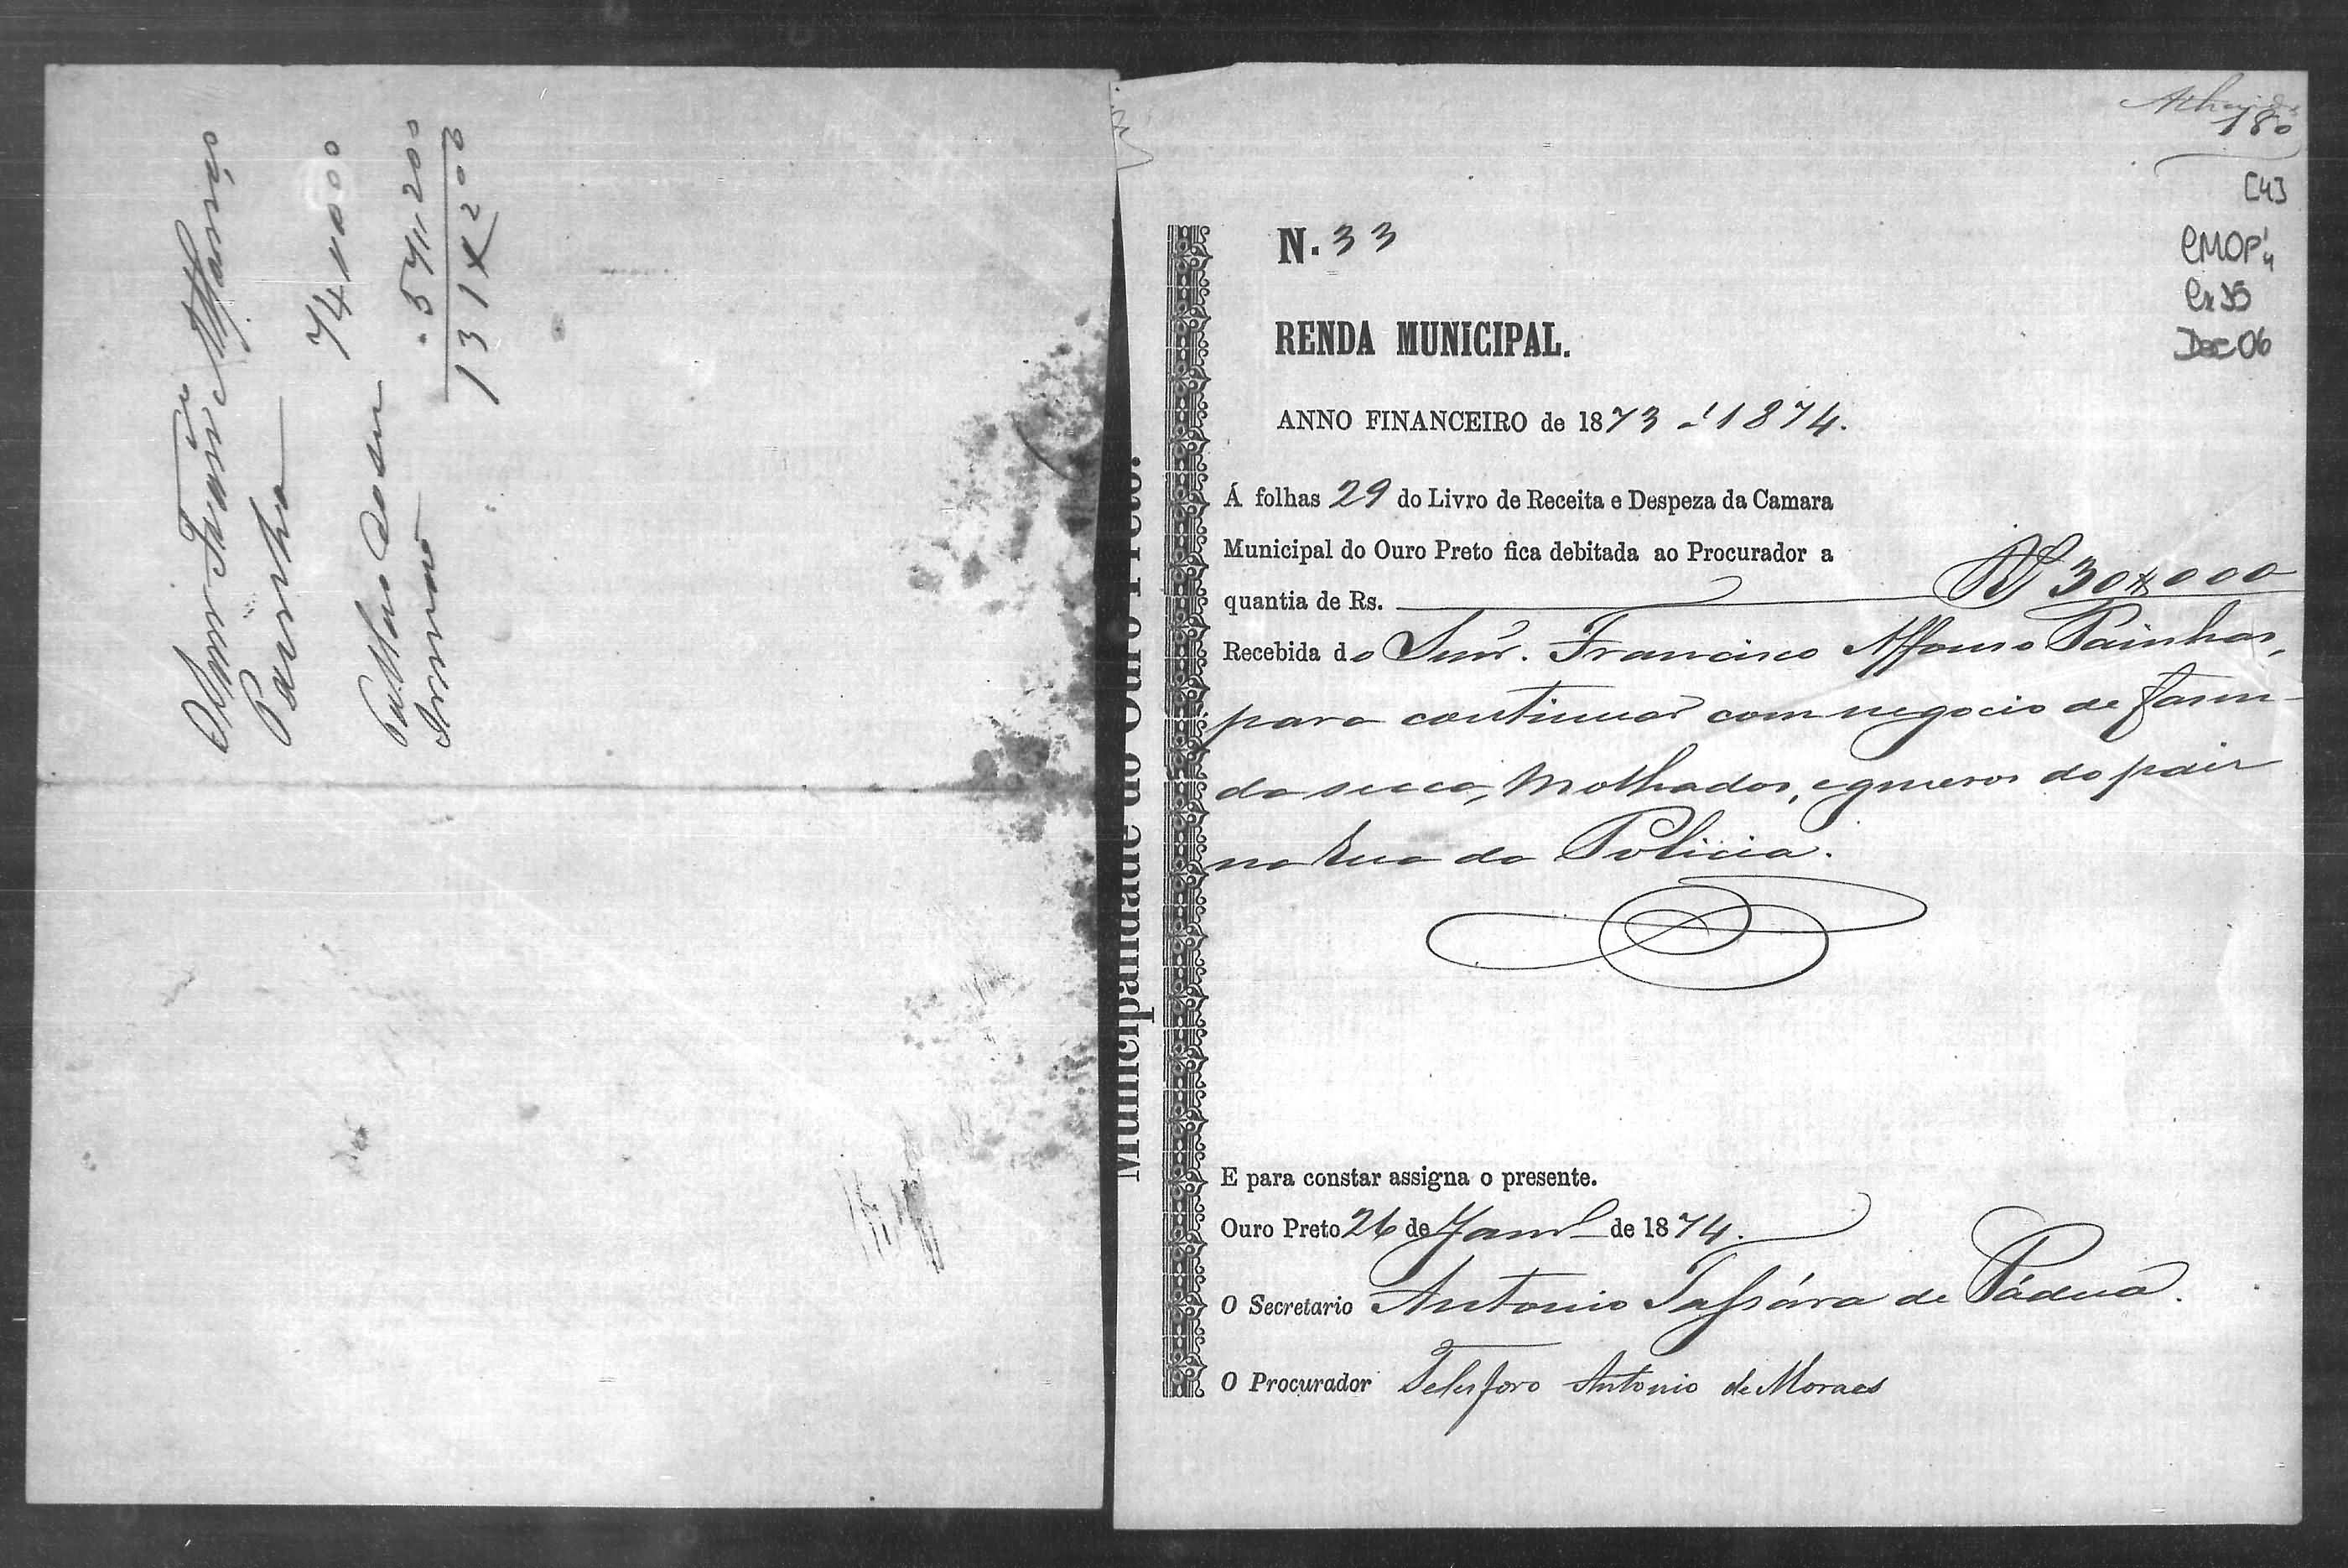 74"000
57"200
131$200
180
[4]
CMOP
Cx 35
Doc 06
Municipalidade do Ouro Preto.
N. 33
RENDA MUNICIPAL.
ANNO FINANCEIRO de 1873 a 1874.
Á folhas 29 do Livro de Receita e Despeza da Camara
Municipal do Ouro Preto fica debitada ao Procurador a
quantia de Rs. R$ 30$000
Recebida do Snr. Francisco Affonso Painhas,
para continuar com negocio de fasen-
da secca, molhados, e generos do pais
na Rua da Policia.
E para constar assigna o presente.
Ouro Preto 26 de Janr.o de 1874.
O Secretario Antonio Tassára de Pádua.
O Procurador Telesforo Antonio de Moraes